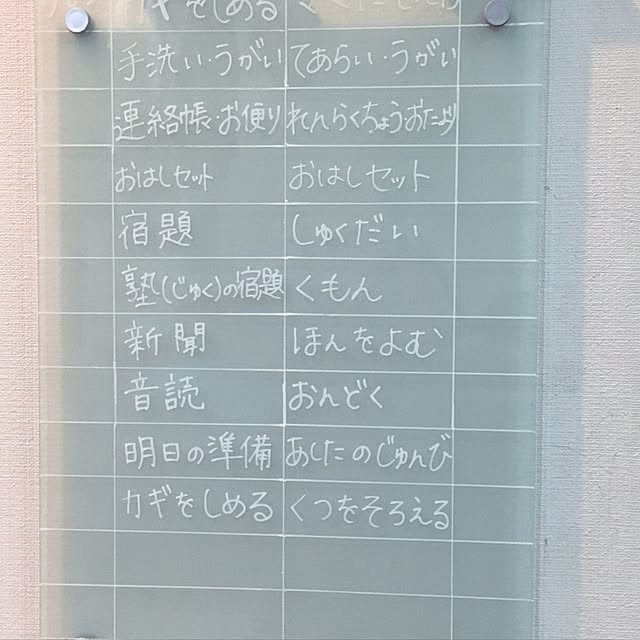 カギをしめる
手洗い・うがい てあらい・うがい
連絡帳・お便り れんらくちょうおたより
おはしセット おはしセット
宿題 しゅくだい
塾(じゅく)の宿題 くもん
新聞 ほんをよむ
音読 おんどく
明日の準備 あしたのじゅんび
カギをしめる くつをそろえる